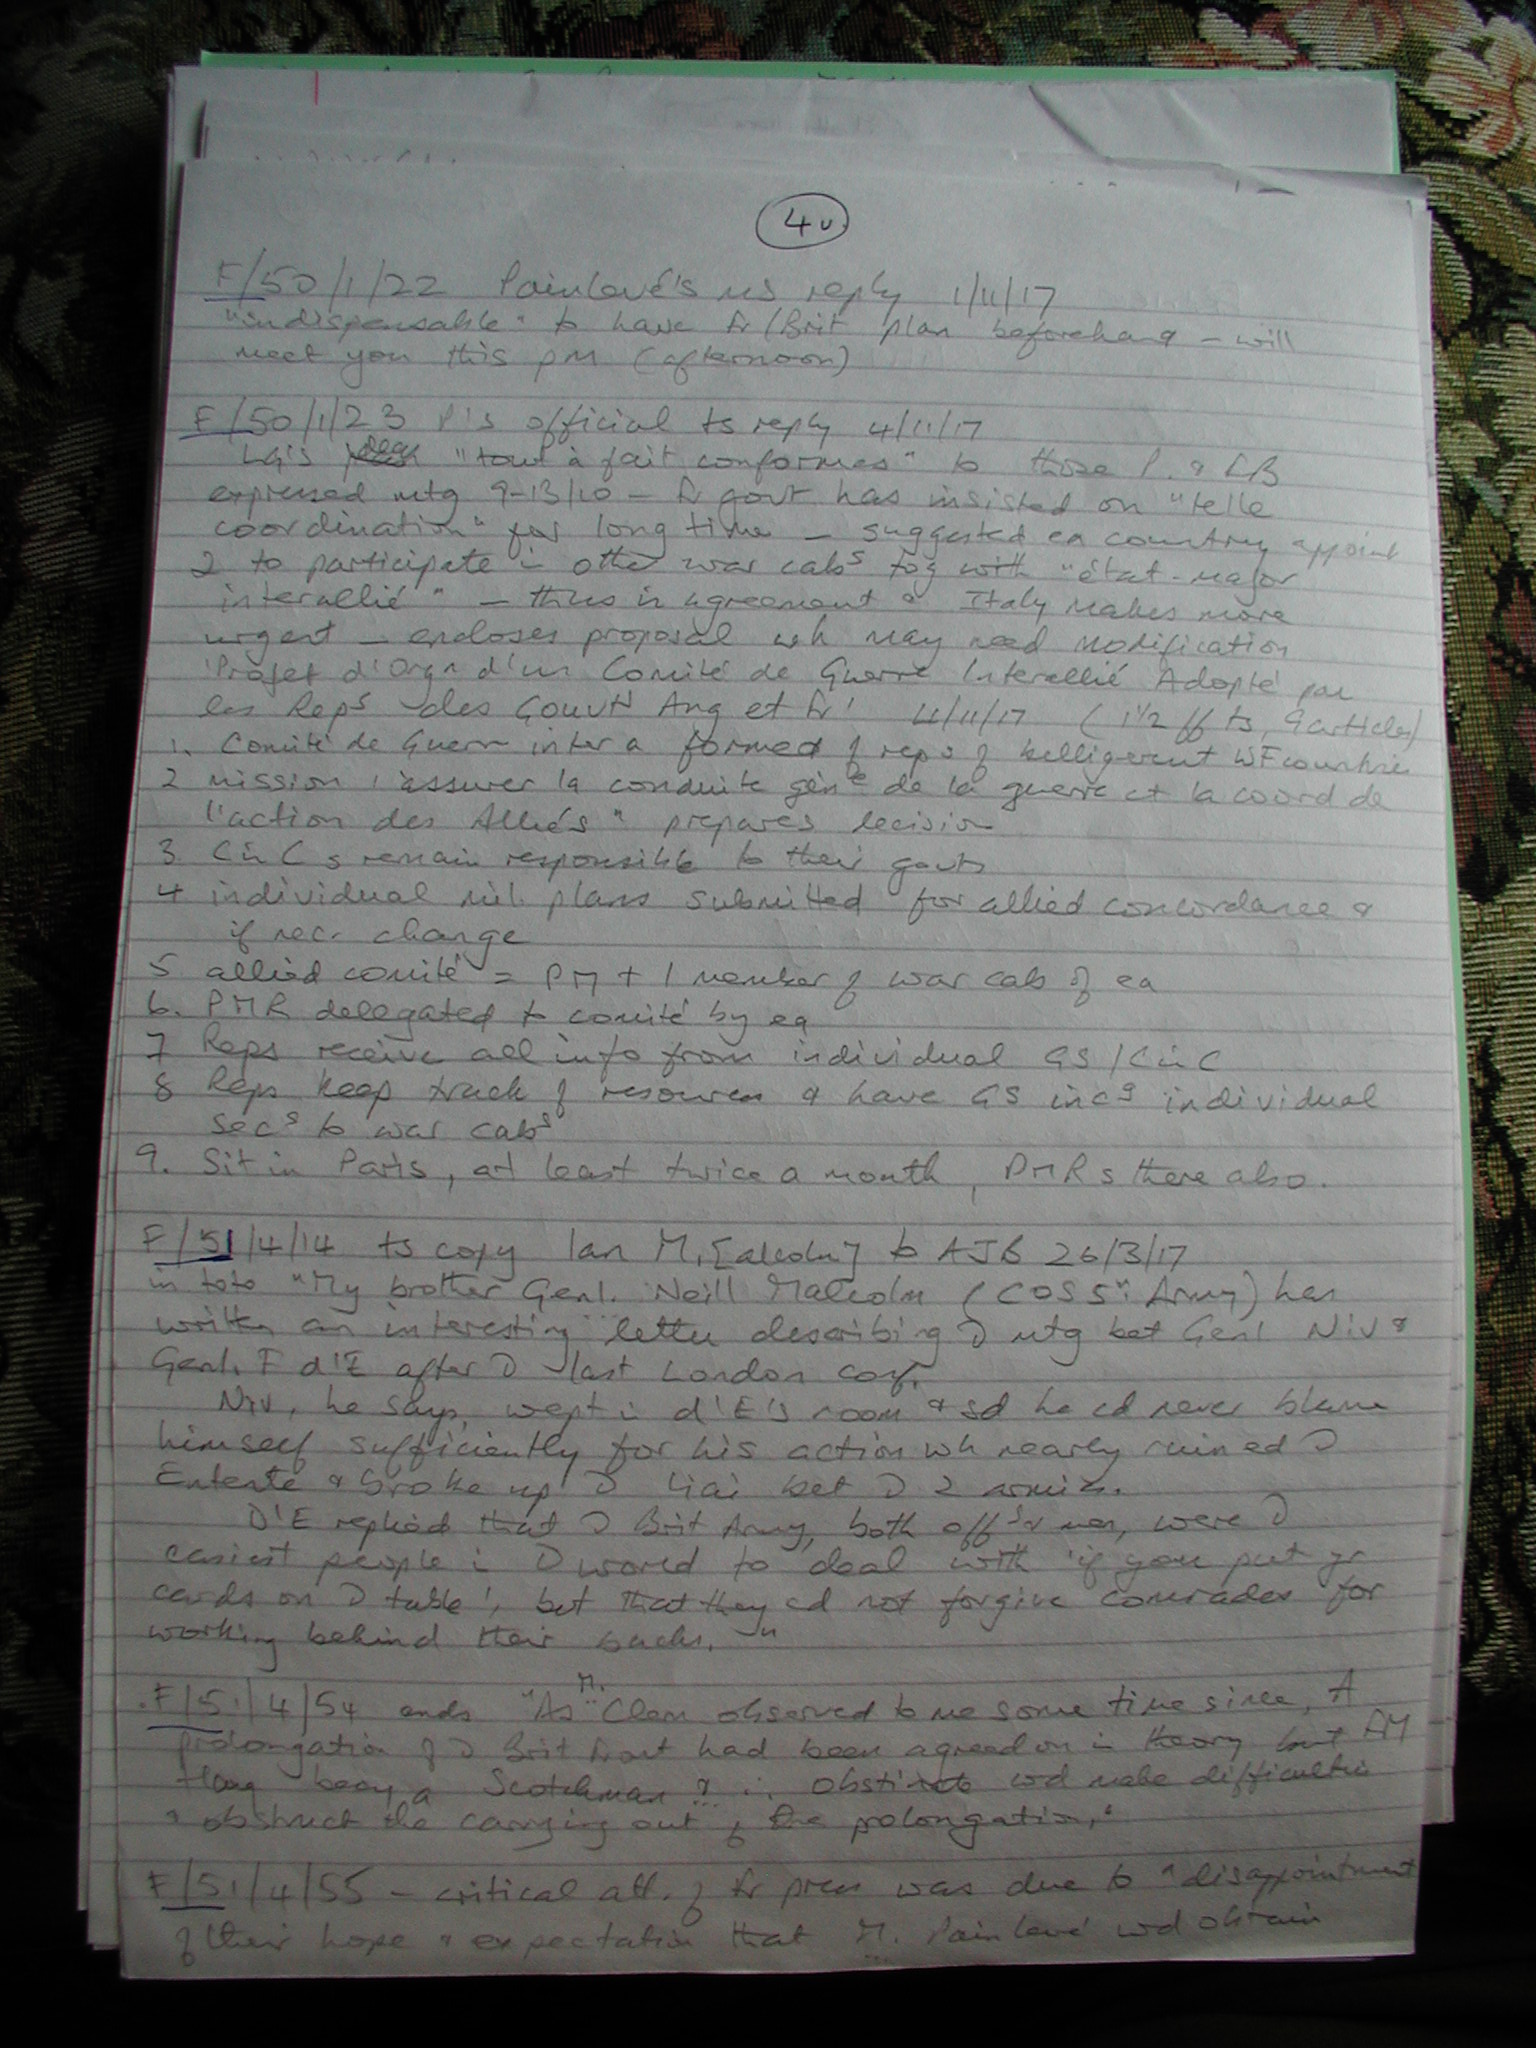 4v.
F/50/1/22 Painlevé's ms reply 1/11/17
"indispensable" to have Fr/Brit plan beforehand – will
meet you this pm (afternoon)
F/50/1/23 P's official ts reply 4/11/17
LG's "tout à fait conformes" to those P. & LB
expressed mtg 9-13/10 – Fr govt has insisted on "telle
coordination" for long time – suggested ea country appoint
2 to participate i other war cabs tog with "état-major
interallié" – thus in agreement & Italy makes more
urgent – encloses proposal wh may need modification
'Projet d'Orgn d'un Comité de Guerre Interallié Adopté par
les Reps des Gouvts Ang et Fr' (1½ ff ts, 9 articles)
1. Comité de Guerre inter a formed of reps of belligerent WF countries
2 mission "assurer la conduite génle de la guerre et la coord de
l'action des Alliés" prepares decision
3 CinCs remain responsible to their govts
4 individual mil. plans submitted for allied concordance &
if nec. change
5 allied comité = PM + 1 member of war cab of ea
6. PMR delegated to comité by ea
7 Reps receive all info from individual GS/CinC
8 Reps keep track of resources & have GS incg individual
secs to war cabs
9. Sit in Paris, at least twice a month, PMRs there also.
F/51/4/14 ts copy Ian M.[alcolm] to AJB 26/3/17
in toto "My brother Genl. Neill Malcolm (COS 5th Army) has
written an interesting letter describing D mtg bet Genl Niv &
Genl. F d'E after D last London conf.
Niv, he says, wept i d'E's room & sd he cd never blame
himself sufficiently for his action wh nearly ruined D
Entente & broke up D liai bet D 2 armies.
D'E replied that D Brit Army, both offrs & men, were D
easiest people i D world to deal with 'if you put yr
cards on D table', but that they cd not forgive comrades for
working behind their backs."
F/51/4/54 ends "As M. Clem observed to me some time since, A
prolongation of D Brit front had been agreed on i theory but FM
Haig being a Scotchman & ∴ obstinate wd make difficulties
& obstruct the carrying out of the prolongation,"
F/51/4/55 – critical att. of Fr press was due to "disappointment
of their hope & expectation that M. Painlevé wd obtain